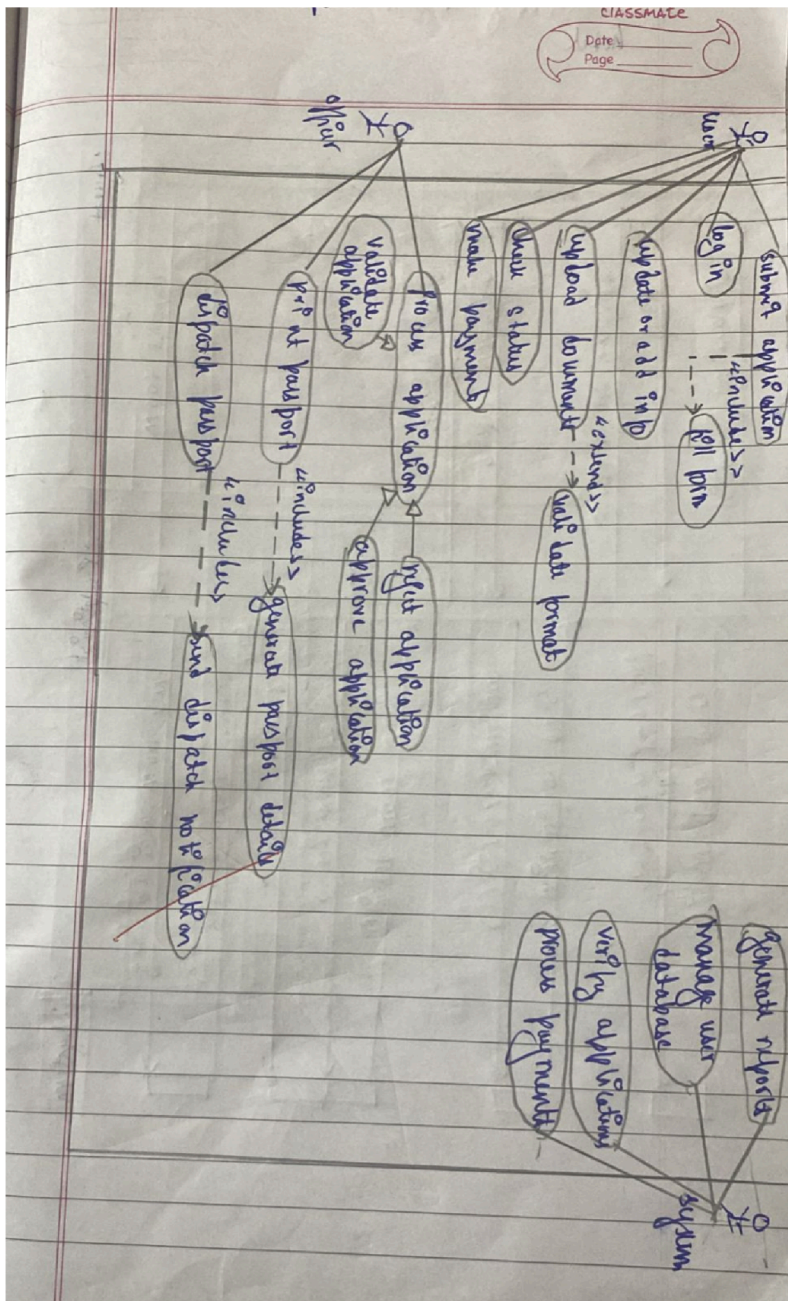 CLASSMATE
Date
Page
user
submit application
login
<<includes>>
fill form
update or add info
upload documents
<<extends>>
validate format
check status
make payments
officer
process application
validate
application
reject application
approve application
print passport
<<includes>>
generate passport details
dispatch passport
<<includes>>
send dispatch notification
generate reports
manage user
database
verify applications
process payments
system